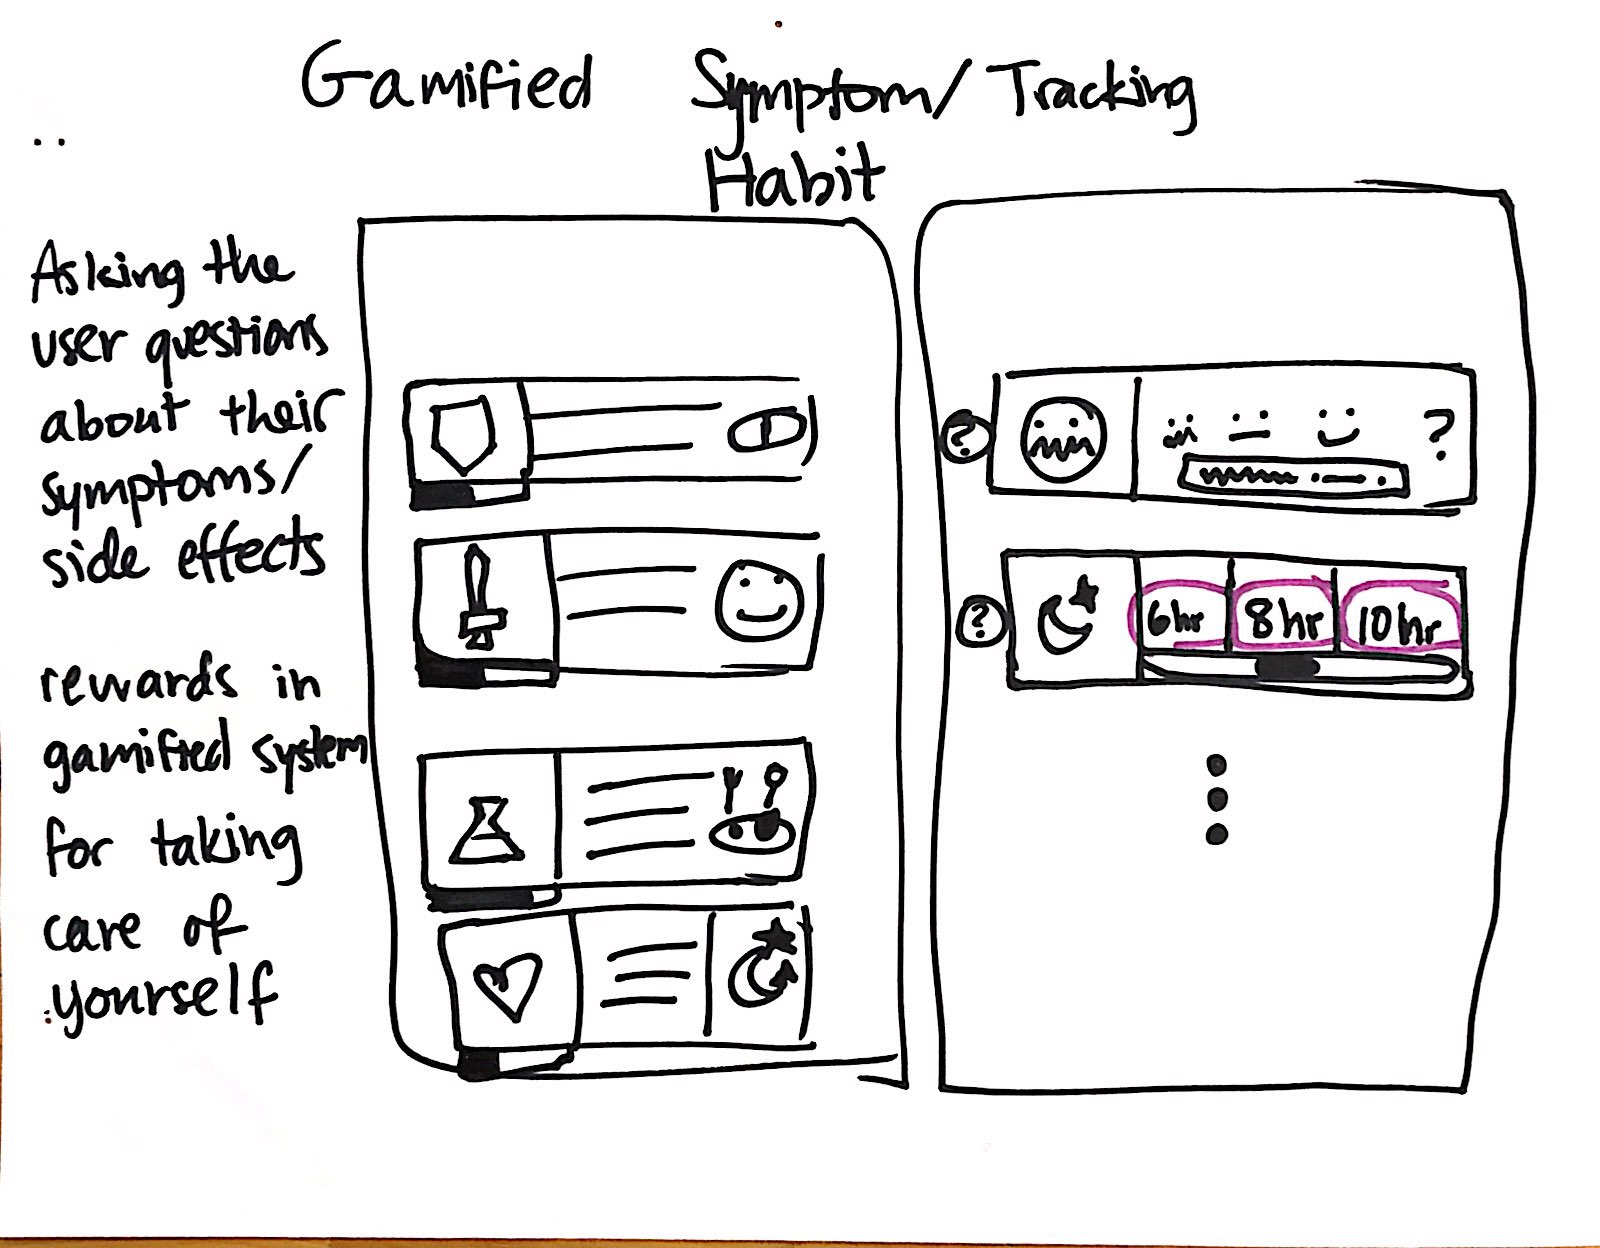 Gamified Symptom/ Tracking
Habit
Asking the
user questions
about their
symptoms/
side effects
rewards in
gamified system
for taking
care of
yourself
?
?
?
6hr 8hr 10hr